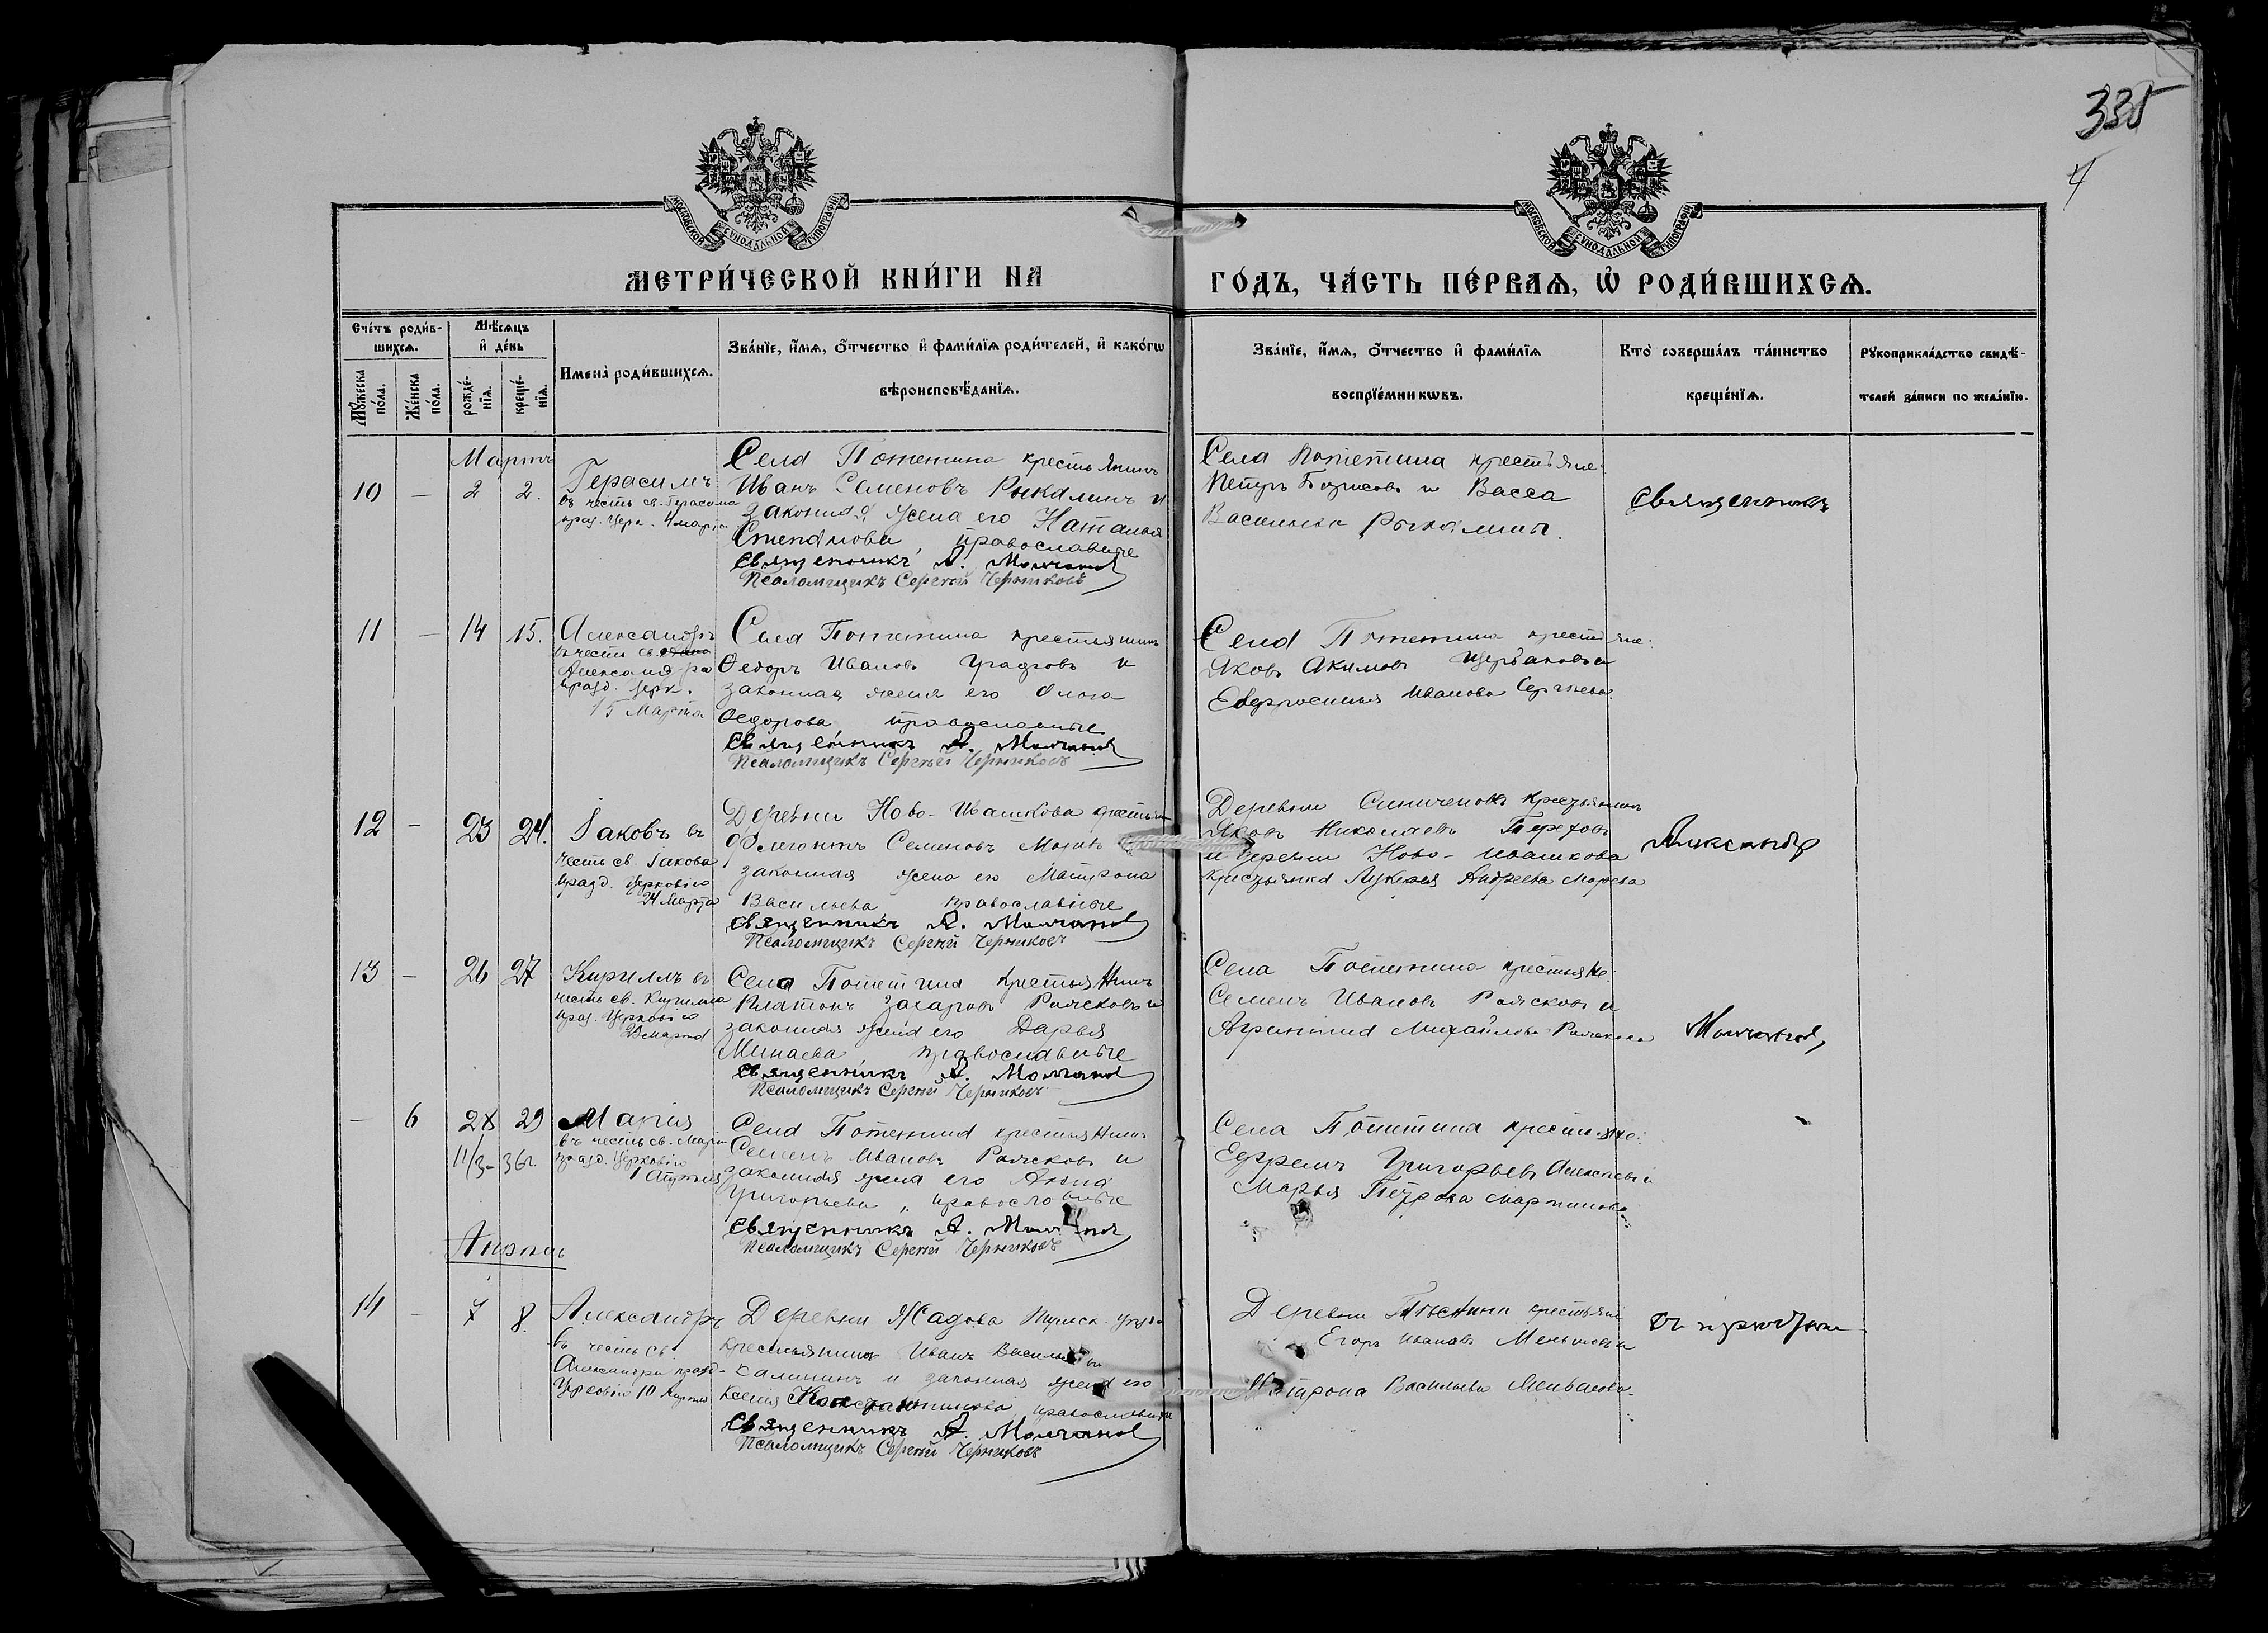 335
4
МОСКОВСКОЙ СѴНОДАЛЬНОЙ ТИПОГРАФІИ
МОСКОВСКОЙ СѴНОДАЛЬНОЙ ТИПОГРАФІИ
МЕТРИ́ЧЕСКОЙ КНИ́ГИ НА
ГО́ДЪ, ЧА́СТЬ ПЕ́РВАѦ, Ѡ҆ РОДИ́ВШИХСѦ.
Сче́тъ роди́в-
шихсѧ.
Мꙋ́жеска
по́ла.
Же́нска
по́ла.
Мѣ́сѧцъ
и҆ де́нь
рожде́-
нїѧ.
креще́-
нїѧ.
Имена̀ роди́вшихсѧ.
Зва́нїе, и҆́мѧ, ѻ҆́тчество и҆ фами́лїѧ роди́телей, и҆ како́гѡ
вѣроисповѣ́данїѧ.
Зва́нїе, и҆́мѧ, ѻ҆́тчество и҆ фами́лїѧ
воспрїе́мникѡвъ.
Кто̀ соверша́лъ та́инство
креще́нїѧ.
Рꙋкоприкла́дство свидѣ́-
телей за́писи по жела́нїю.
Мартъ
10 — 2 2.
Герасимъ
въ честь св. Герасима
праз. Церк. 4 марта
Села Потетина крестьянинъ
Иванъ Семеновъ Рыкалинъ и
законная жена его Наталья
Степанова, православные
Священникъ А. Молчановъ
Псаломщикъ Сергѣй Черниковъ
Села Потетина крестьяне
Петръ Борисовъ и Васса
Васильева Рыкалины.
Священникъ
11 — 14 15.
Александръ
въ честь св.
Александра
празд. церк.
15 Марта
Села Потетина крестьянинъ
Ѳедоръ Ивановъ и
законная жена его Ольга
Ѳедорова православные
Священникъ А. Молчановъ
Псаломщикъ Сергѣй Черниковъ
Села Потетина крестьяне:
Яковъ Акимовъ Щербаковъ и
Евфросинья Иванова Сергѣева.
12 — 23 24.
Іаковъ въ
честь св. Іакова
празд. Церковію
24 Марта
Деревни Ново-Ивашкова
Флегонтъ Семеновъ
законная жена его Матрона
Васильева православные
Священникъ А. Молчановъ
Псаломщикъ Сергѣй Черниковъ
Деревни крестьянинъ
Яковъ Николаевъ Тереховъ
и деревни Ново-Ивашкова
крестьянка Лукерья Андреева
Александръ
13 — 26 27
Кириллъ въ
честь св. Кирилла
праз. Церковію
марта
Села Потетина крестьянинъ
Платонъ Захаровъ Рясковъ и
законная жена его Дарья
Минаева, православные
Священникъ А. Молчановъ
Псаломщикъ Сергѣй Черниковъ
Села Потетина крестьяне:
Семенъ Ивановъ Рясковъ и
Агрипина Михайлова Ряскова
Молчановъ,
— 6 28 29
11/3-36г.
Марія
въ честь св. Маріи
празд. Церковію
1 Апрѣля
Села Потетина крестьянинъ
Семенъ Ивановъ Рясковъ и
законная жена его Анна
Григорьева, православные
Священникъ А. Молчановъ
Псаломщикъ Сергѣй Черниковъ
Села Потетина крестьяне:
Ефремъ Григорьевъ Алексѣевъ и
Марья Петрова Мартинова.
Апрѣль
14 — 7 8.
Александръ
въ честь св.
Александра празд-
Церковію 10 Апрѣля
Деревни Жадова уѣзда
крестьянинъ Иванъ Васильевъ
Калининъ и законная жена его
Ксенія Константинова православные
Священникъ А. Молчановъ
Псаломщикъ Сергѣй Черниковъ
Деревни крестьяне
Егоръ Ивановъ Меньшовъ и
Матрона Васильева Меньшова.